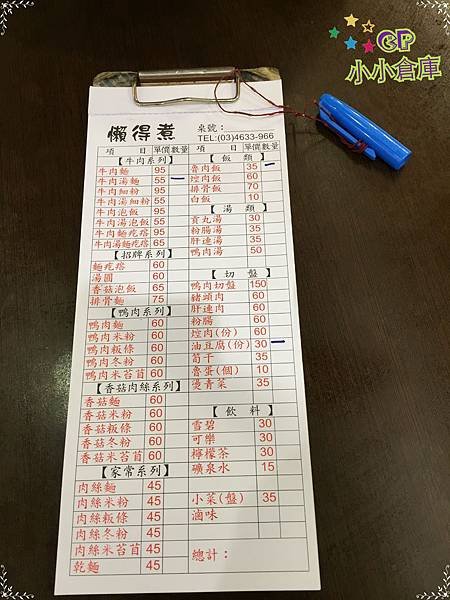 GP
小小倉庫
懶得煮
桌號：
TEL:(03)4633-966
項 目 單價 數量
【牛肉系列】
牛肉麵 95
牛肉湯麵 55
牛肉細粉 95
牛肉湯細粉 55
牛肉泡飯 95
牛肉湯泡飯 55
牛肉麵疙瘩 95
牛肉湯麵疙瘩 65
【招牌系列】
麵疙瘩 60
湯圓 60
香菇泡飯 65
排骨麵 75
【鴨肉系列】
鴨肉麵 60
鴨肉米粉 60
鴨肉粄條 60
鴨肉冬粉 60
鴨肉米苔苜 60
【香菇肉絲系列】
香菇麵 60
香菇米粉 60
香菇粄條 60
香菇冬粉 60
香菇米苔苜 60
【家常系列】
肉絲麵 45
肉絲米粉 45
肉絲粄條 45
肉絲冬粉 45
肉絲米苔苜 45
乾麵 45
項 目 單價 數量
【飯類】
魯肉飯 35
焢肉飯 60
排骨飯 70
白飯 10
【湯類】
貢丸湯 30
粉腸湯 35
肝連湯 35
鴨肉湯 50
【切盤】
鴨肉切盤 150
豬頭肉 60
肝連肉 60
粉腸 60
焢肉(份) 60
油豆腐(份) 30
筍干 35
魯蛋(個) 10
燙青菜 35
【飲料】
雪碧 30
可樂 30
檸檬茶 30
礦泉水 15
小菜(盤) 35
滷味
總計：